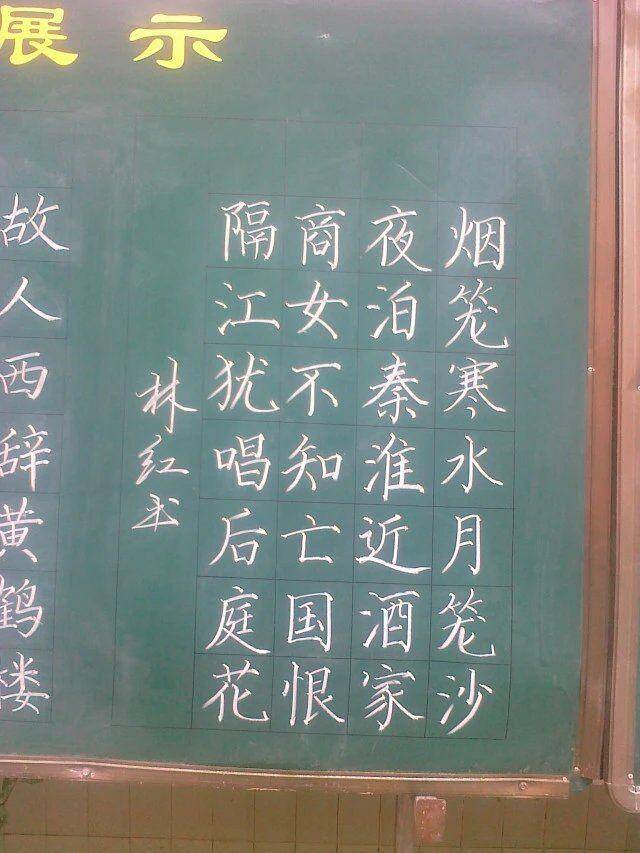 展示
烟笼寒水月笼沙
夜泊秦淮近酒家
商女不知亡国恨
隔江犹唱后庭花
林红书
故人西辞黄鹤楼